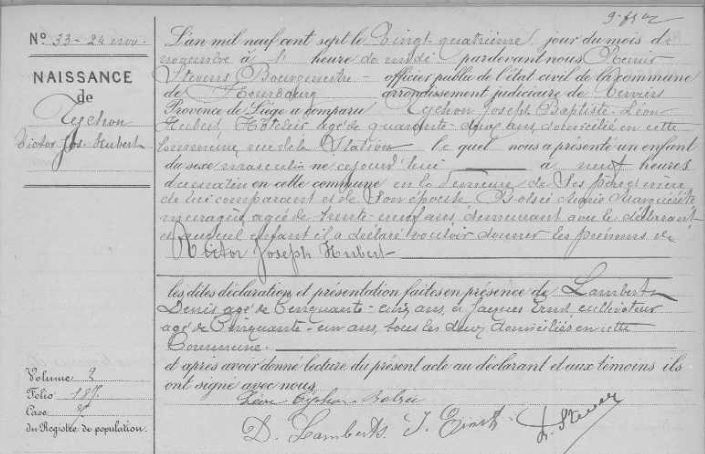 N° 33 - 24 nov.
NAISSANCE
de
Tychon
Victor Jos. Hubert
L'an mil neuf cent sept le Vingt quatrième jour du mois de
novembre à heure de midi pardevant nous
Bourgmestre officier public de l'état civil de la commune
de arrondissement judiciaire de Verviers
Province de Liége a comparu Tychon Joseph Baptiste Léon
Hubert, Hôtelier âgé de quarante ans, domicilié en cette
commune rue de la Station lequel nous a présenté un enfant
du sexe masculin né cejourd'hui à neuf heures
du matin en cette commune en la demeure de ses père et mère
de lui comparant et de son épouse Marguerite
ménagère, âgée de trente ans, demeurant avec le déclarant
et auquel enfant il a déclaré vouloir donner les prénoms de
Victor Joseph Hubert
les dites déclaration et présentation faites en présence de Lambert
Denis âgé de Cinquante-cinq ans, à Jacques Ernst, cultivateur
âgé de Cinquante-un ans, tous les deux domiciliés en cette
Commune.
et après avoir donné lecture du présent acte au déclarant et aux témoins ils
ont signé avec nous
Léon Tychon
D. Lamberts J. Ernst
Volume 2
Folio 187
Case
du Registre de population.